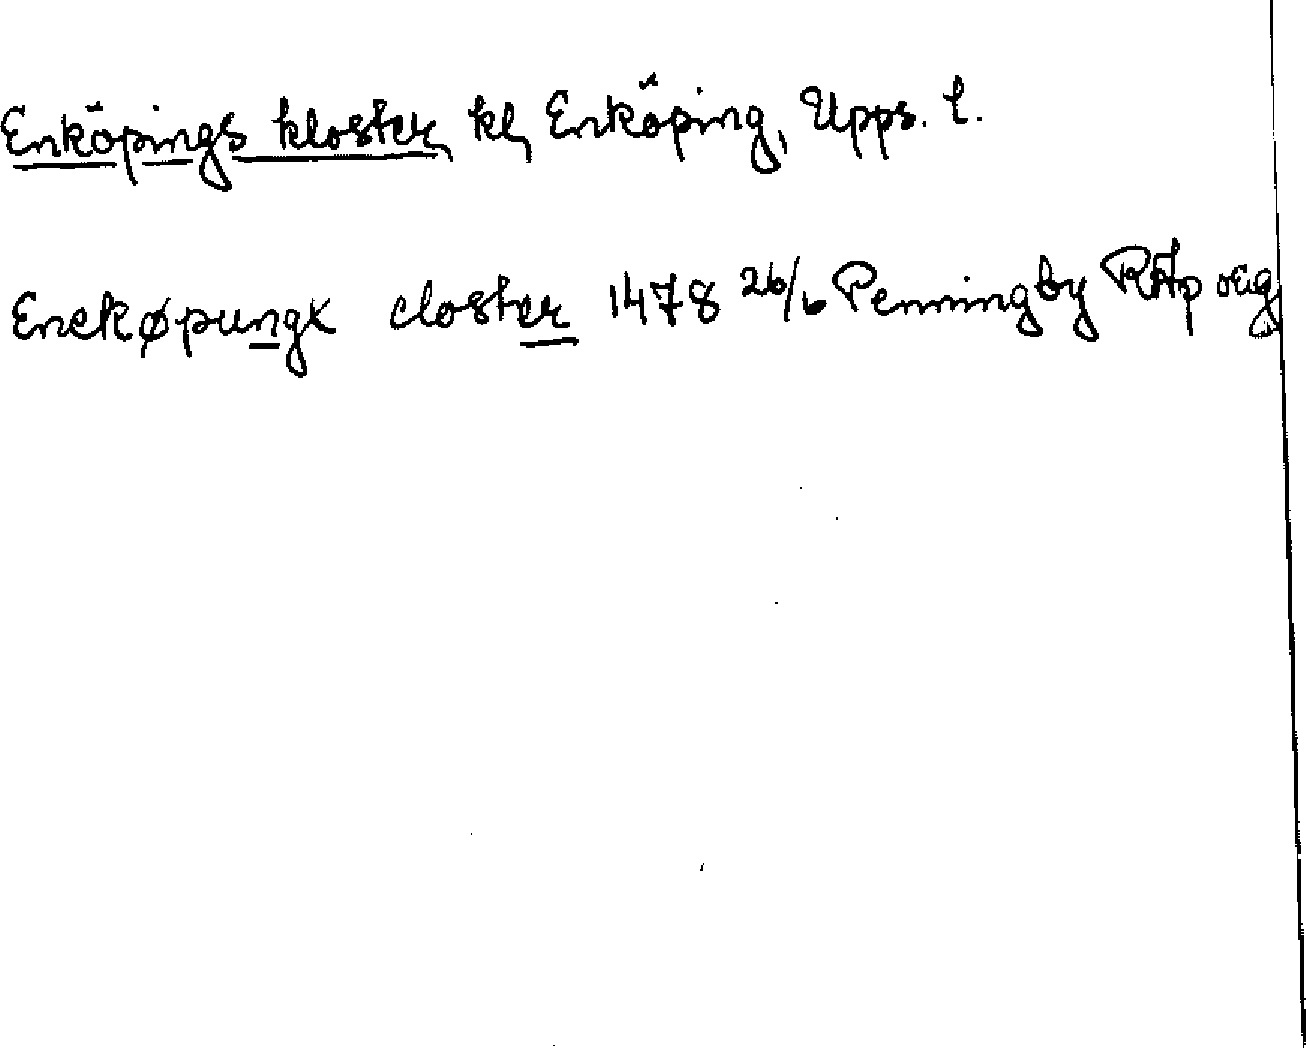 Enköpings kloster, kl, Enköping, Upps. l.
Encköpungx closter 1478 26/6 Penningby RAp orig